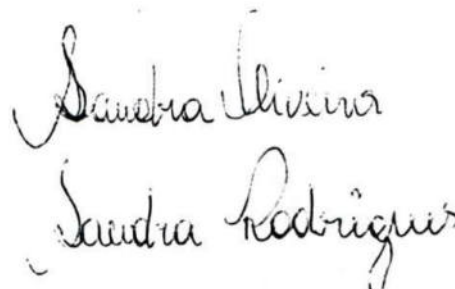 Sandra Oliveira
Sandra Rodrigues